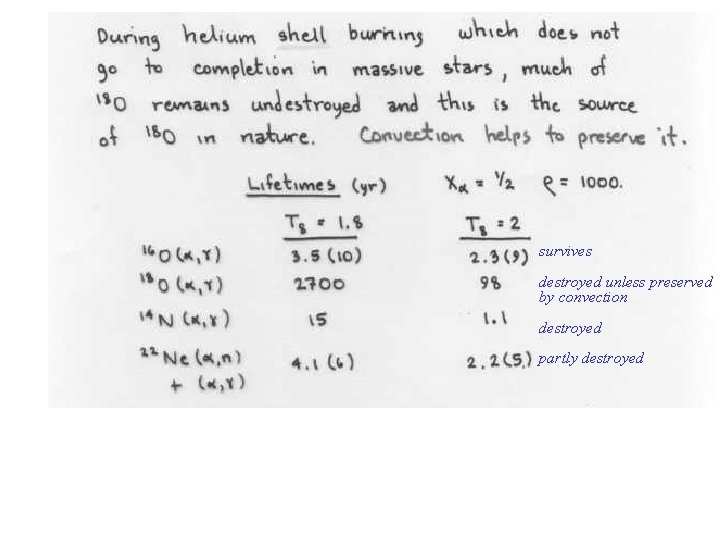 During helium shell burning which does not
go to completion in massive stars, much of
¹⁸O remains undestroyed and this is the source
of ¹⁸O in nature. Convection helps to preserve it.
Lifetimes (yr) Xα = 1/2 ρ = 1000.
T₈ = 1.8 T₈ = 2
¹⁶O(α,γ) 3.5 (10) 2.3(9) survives
¹⁸O(α,γ) 2700 98 destroyed unless preserved
by convection
¹⁴N (α,γ) 15 1.1 destroyed
²²Ne(α,n) 4.1 (6) 2.2(5) partly destroyed
+ (α,γ)